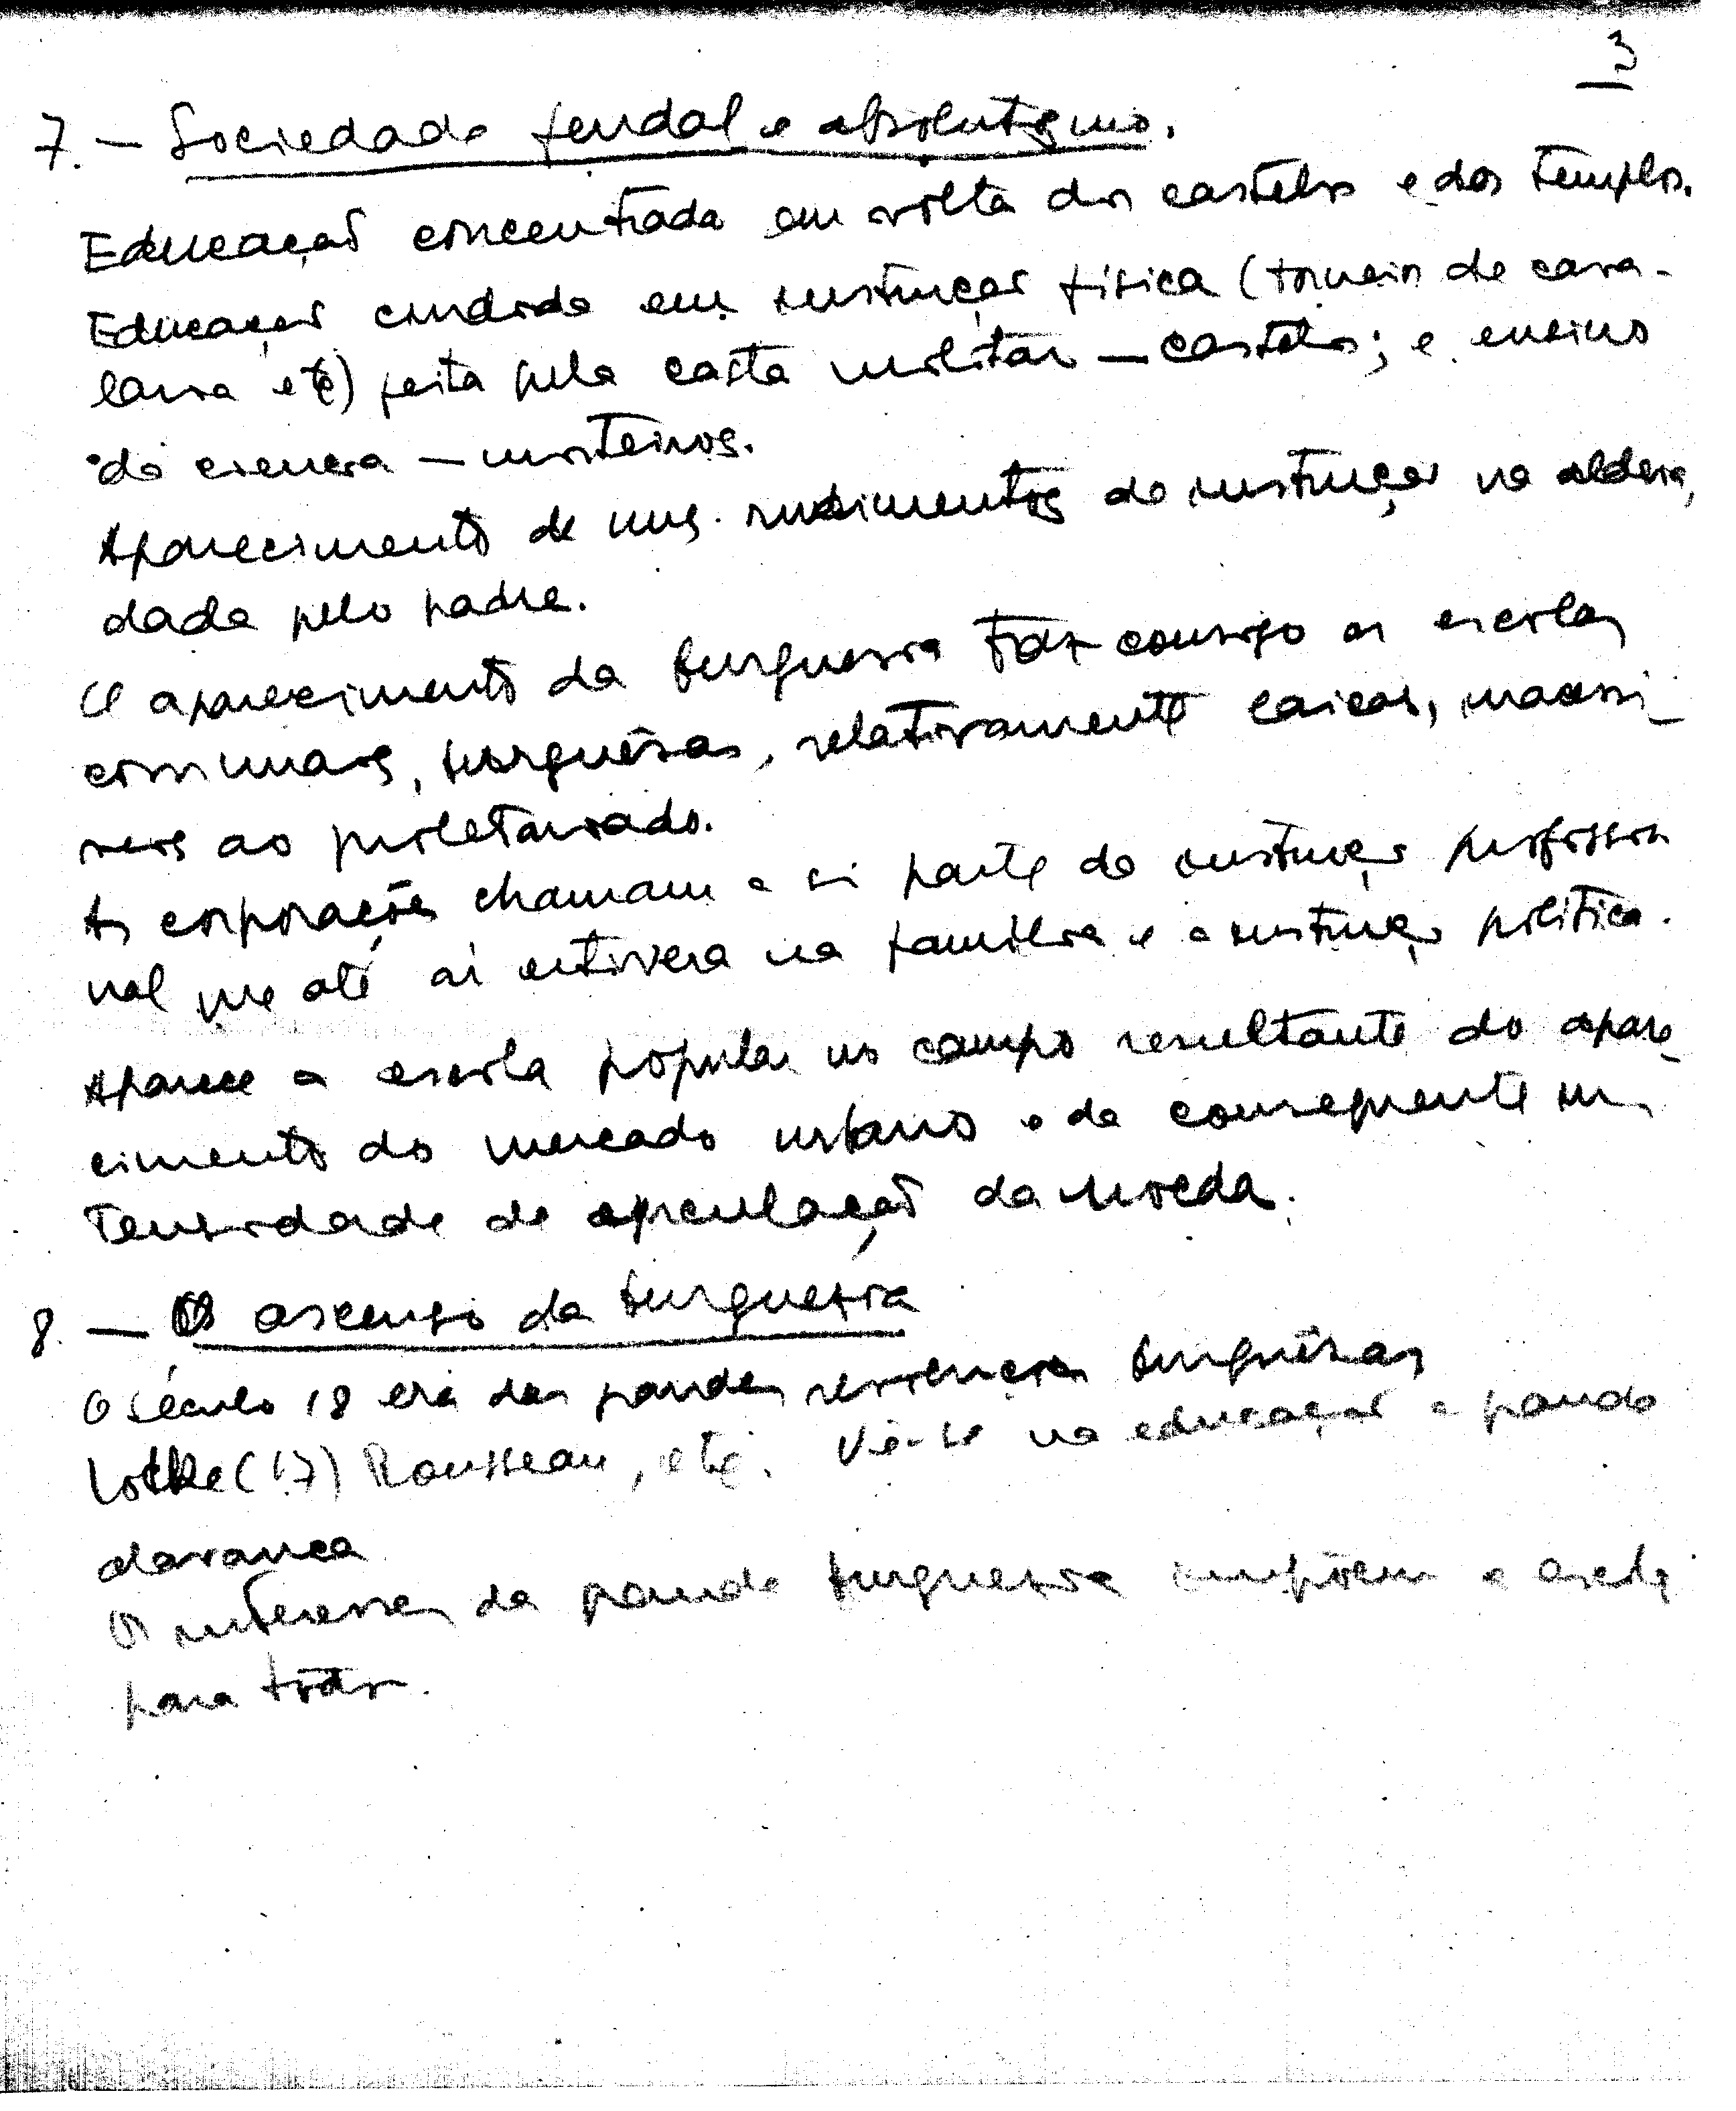 3
7. — Sociedade feudal e absolutismo.
Educação concentrada em volta dos castelos e dos templos.
Educação cindida em instrução física (torneios de cava-
laria etc) feita pela casta militar — castelos; e ensino
da ciência — mosteiros.
Aparecimento de uns rudimentos de instrução na aldeia,
dada pelo padre.
O aparecimento da burguesia traz consigo as escolas
comunais, burguêsas, relativamente laicas, inacessí-
veis ao proletariado.
As corporações chamam a si parte da instrução profissio
nal que até aí estivera na família e a instrução política.
Aparece a escola popular no campo resultante do apare-
cimento do mercado urbano e da consequente in-
tensidade de circulação da moeda.
8. — O ascenso da burguesia
O século 18 era das grandes revoluções burguêsas
Locke (17) Rousseau, etc. Vê-se na educação a grande
alavanca
Os interesses da grande burguesia impõem a
para todos.